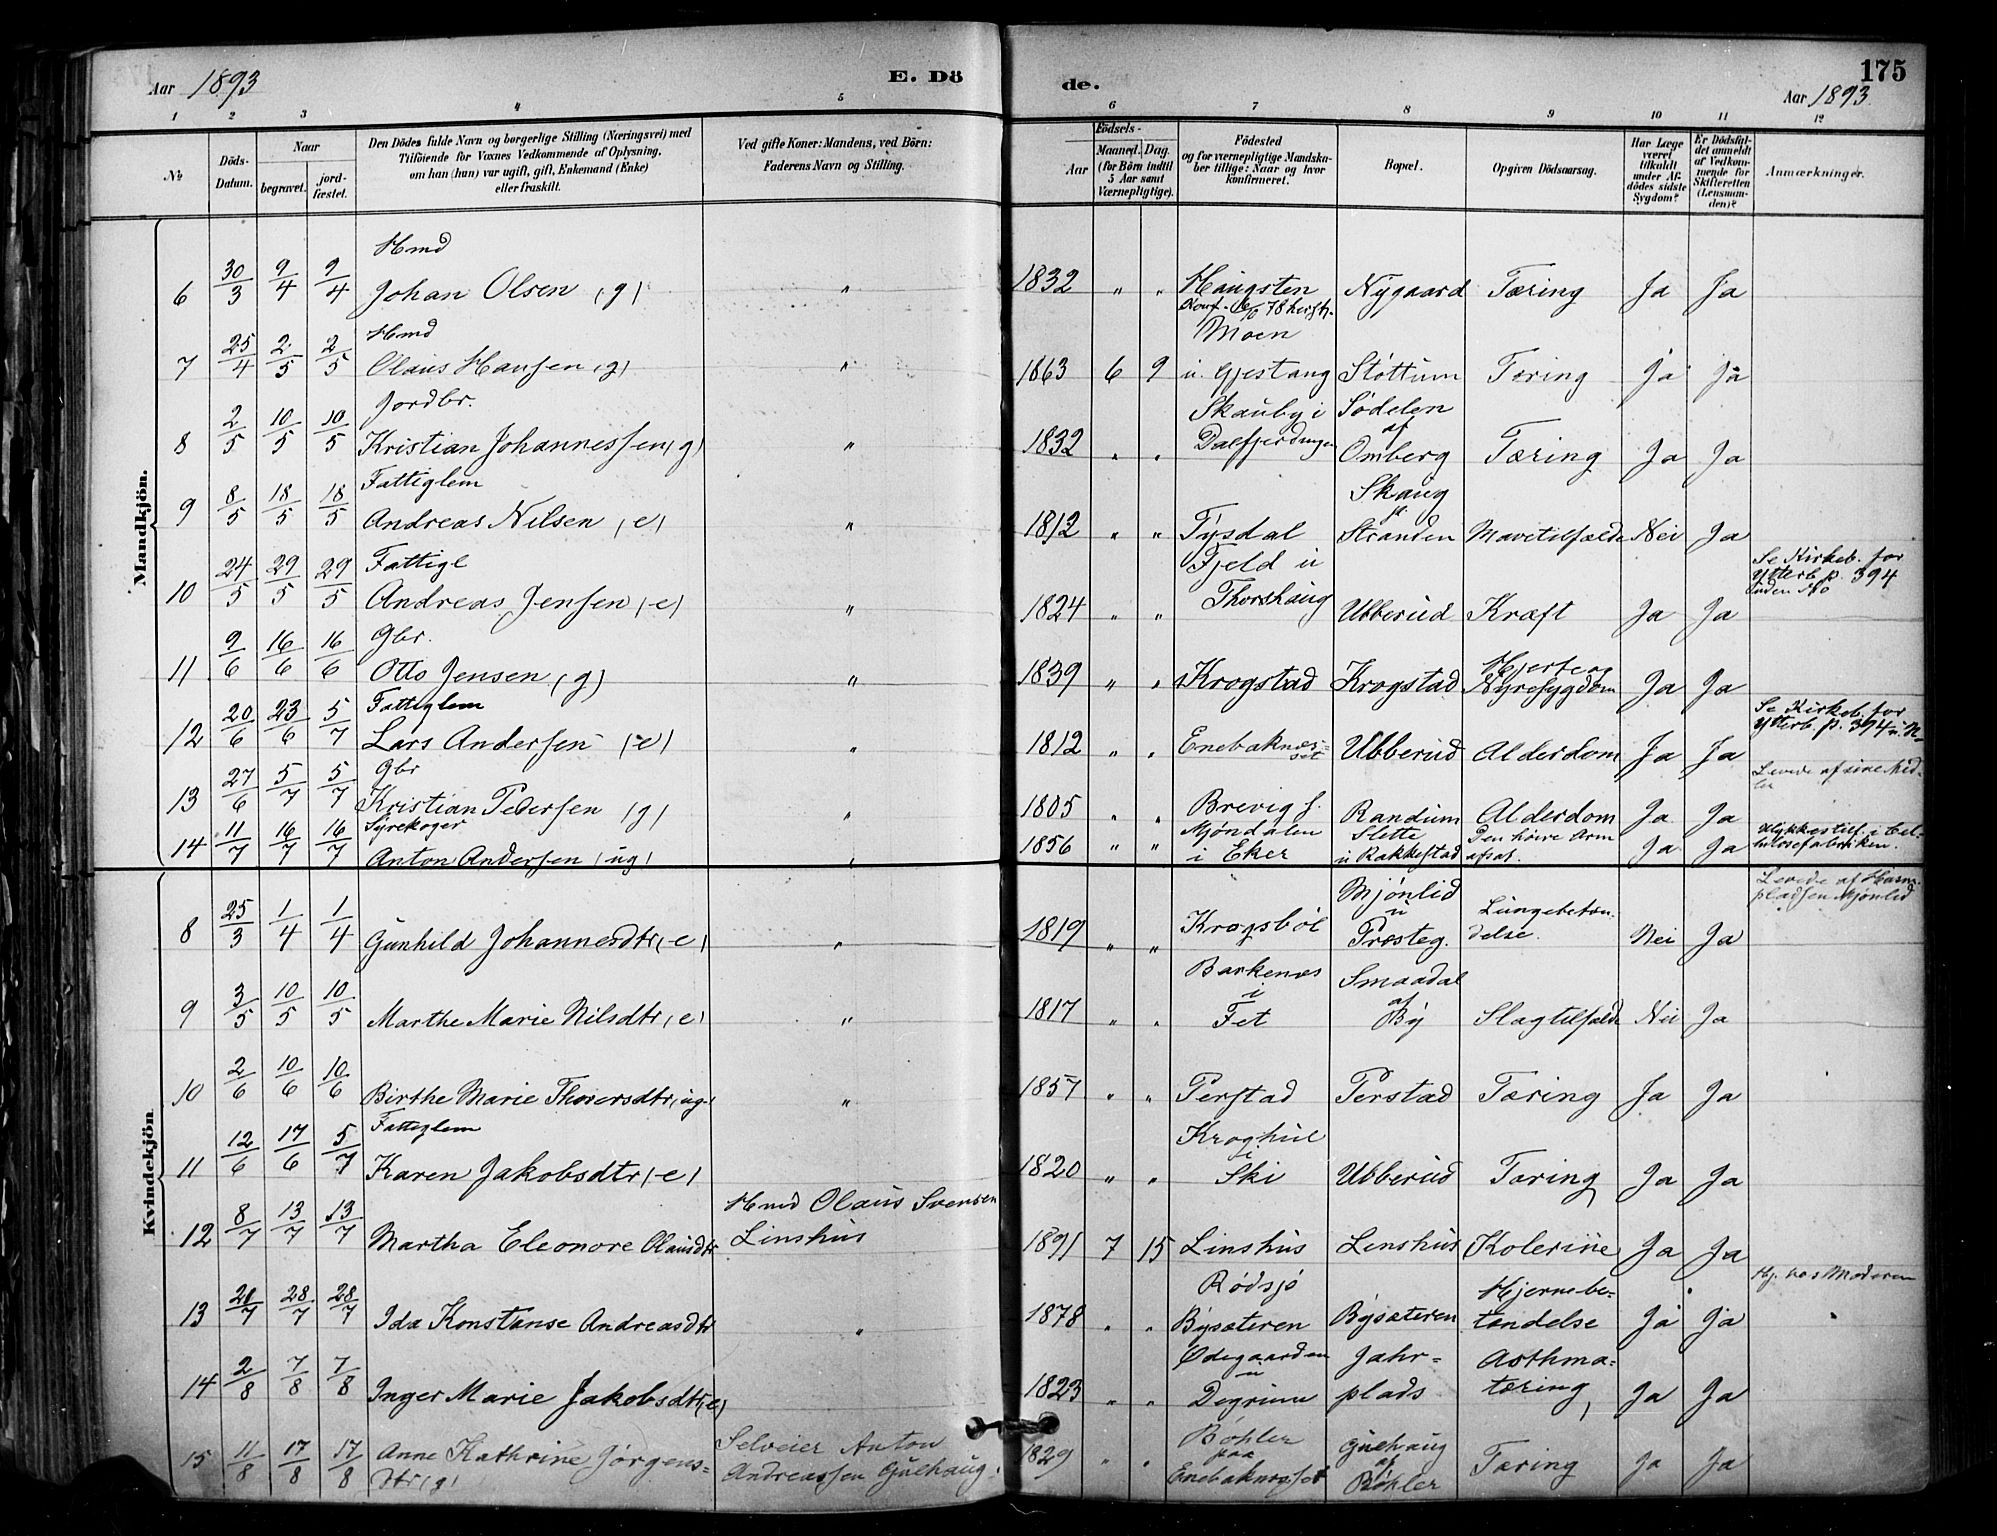 Aar 1893
E. Dö
de.
175
Aar 1893
1 2 3 4 5 6 7 8 9 10 11 12
№
Döds-Datum.
Naar
begravet.
jord-fæstet.
Den Dödes fulde Navn og borgerlige Stilling (Næringsvei) med
Tilföiende for Voxnes Vedkommende af Oplysning,
om han (hun) var ugift, gift, Enkemand (Enke)
eller fraskilt.
Ved gifte Koner: Mandens, ved Börn:
Faderens Navn og Stilling.
Födsels-
Aar
Maaned. Dag.
(for Börn indtil
5 Aar samt
Værnepligtige).
Födested
og for værnepligtige Mandska-
ber tillige: Naar og hvor
konfirmeret.
Bopæl.
Opgiven Dödsaarsag.
Har Læge
været
tilkaldt
under Af-
dödes sidste
Sygdom?
Er Dödsfal-
det anmeldt
af Vedkom-
mende for
Skifteretten
(Lensman-
den)?
Anmærkninger.
Mandkjön.
Hmd
6 30/3 9/4 9/4 Johan Olsen (g) " 1832 " " Haugsten Nygaard Tæring Ja Ja
Hmd
Moen
7 25/4 2/5 2/5 Olaus Hansen (g) " 1863 6 9 u. Gjestang Støttum Tæring Ja Ja
Jordbr. Skauby i Sødelen
8 2/5 10/5 10/5 Kristian Johannessen (g) " 1832 " " Dalefjerdingen af Omberg Tæring Ja Ja
Fattiglem Skaug
9 8/5 18/5 18/5 Andreas Nilsen (e) " 1812 " " Tysdal Stranden Mavetilfælde Nei Ja
Fattigl Fjeld u Se Kirkeb. for
Ytterb. p. 394
uden No
10 24/5 29/5 29/5 Andreas Jensen (e) " 1824 " " Thorshaug Ubberud Kræft Ja Ja
Gbr. Hjerte og
11 9/6 16/6 16/6 Otto Jensen (g) " 1839 " " Krogstad Krogstad Nyresygdom Ja Ja
Fattiglem Se Kirkeb. for
Ytterb. p. 394 u. N-
12 20/6 23/6 5/7 Lars Andersen (e) " 1812 " " Enebaknesset Ubberud Alderdom Ja Ja
Gbr Levede af sine Mid-
ler
13 27/6 5/7 5/7 Kristian Pedersen (g) " 1805 " " Brevig f. Randum Alderdom Ja Ja
Syrekoger Mjøndalen Slette Den høire Arm Ulykkestilf. i Cel-
14 11/7 16/7 16/7 Anton Andersen (ug) " 1856 " " i Eker u Rakkestad afsat. Ja Ja lulosefabriken.
Kvindekjön.
Mjønlid Levede af Husm.
u Lungebetæn- pladsen Mjønlid
8 25/3 1/4 1/4 Gunhild Johannesdtr (e) " 1819 " " Krogsbøl Præsteg. delse. Nei Ja
Barkenes Smaadal
i af
9 3/5 10/5 10/5 Marthe Marie Nilsdtr (e) " 1817 " " Fet By Slagtilfælde Nei Ja
10 2/6 10/6 10/6 Birthe Marie Thorersdtr (ug) " 1857 " " Perstad Perstad Tæring Ja Ja
Fattiglem Kroghul
i
11 12/6 17/6 5/7 Karen Jakobsdtr (e) 1820 " " Ski Ubberud Tæring Ja Ja
Hmd Olaus Svensen
12 8/7 13/7 13/7 Martha Eleonore Olausdtr Linshus 1891 7 15 Linshus Linshus Kolerine Ja Ja
Rødsjø Hjernebe- Hj. hos Moderen
13 21/7 28/7 28/7 Ida Konstanse Andreasdtr " 1878 " " Bysæteren Bysæteren tændelse Ja Ja
Ødegaarden Jahr- Asthma-
u
14 2/8 7/8 7/8 Inger Marie Jakobsdtr (e) 1823 " " Degrum plads tæring Ja Ja
Anne Kathrine Jørgens- Selveier Anton Bøhler Gulhaug
15 11/8 17/8 17/8 dtr (g) Andreassen Gulhaug. 1829 " " paa Enebaknesset af Bøhler Tæring Ja Ja